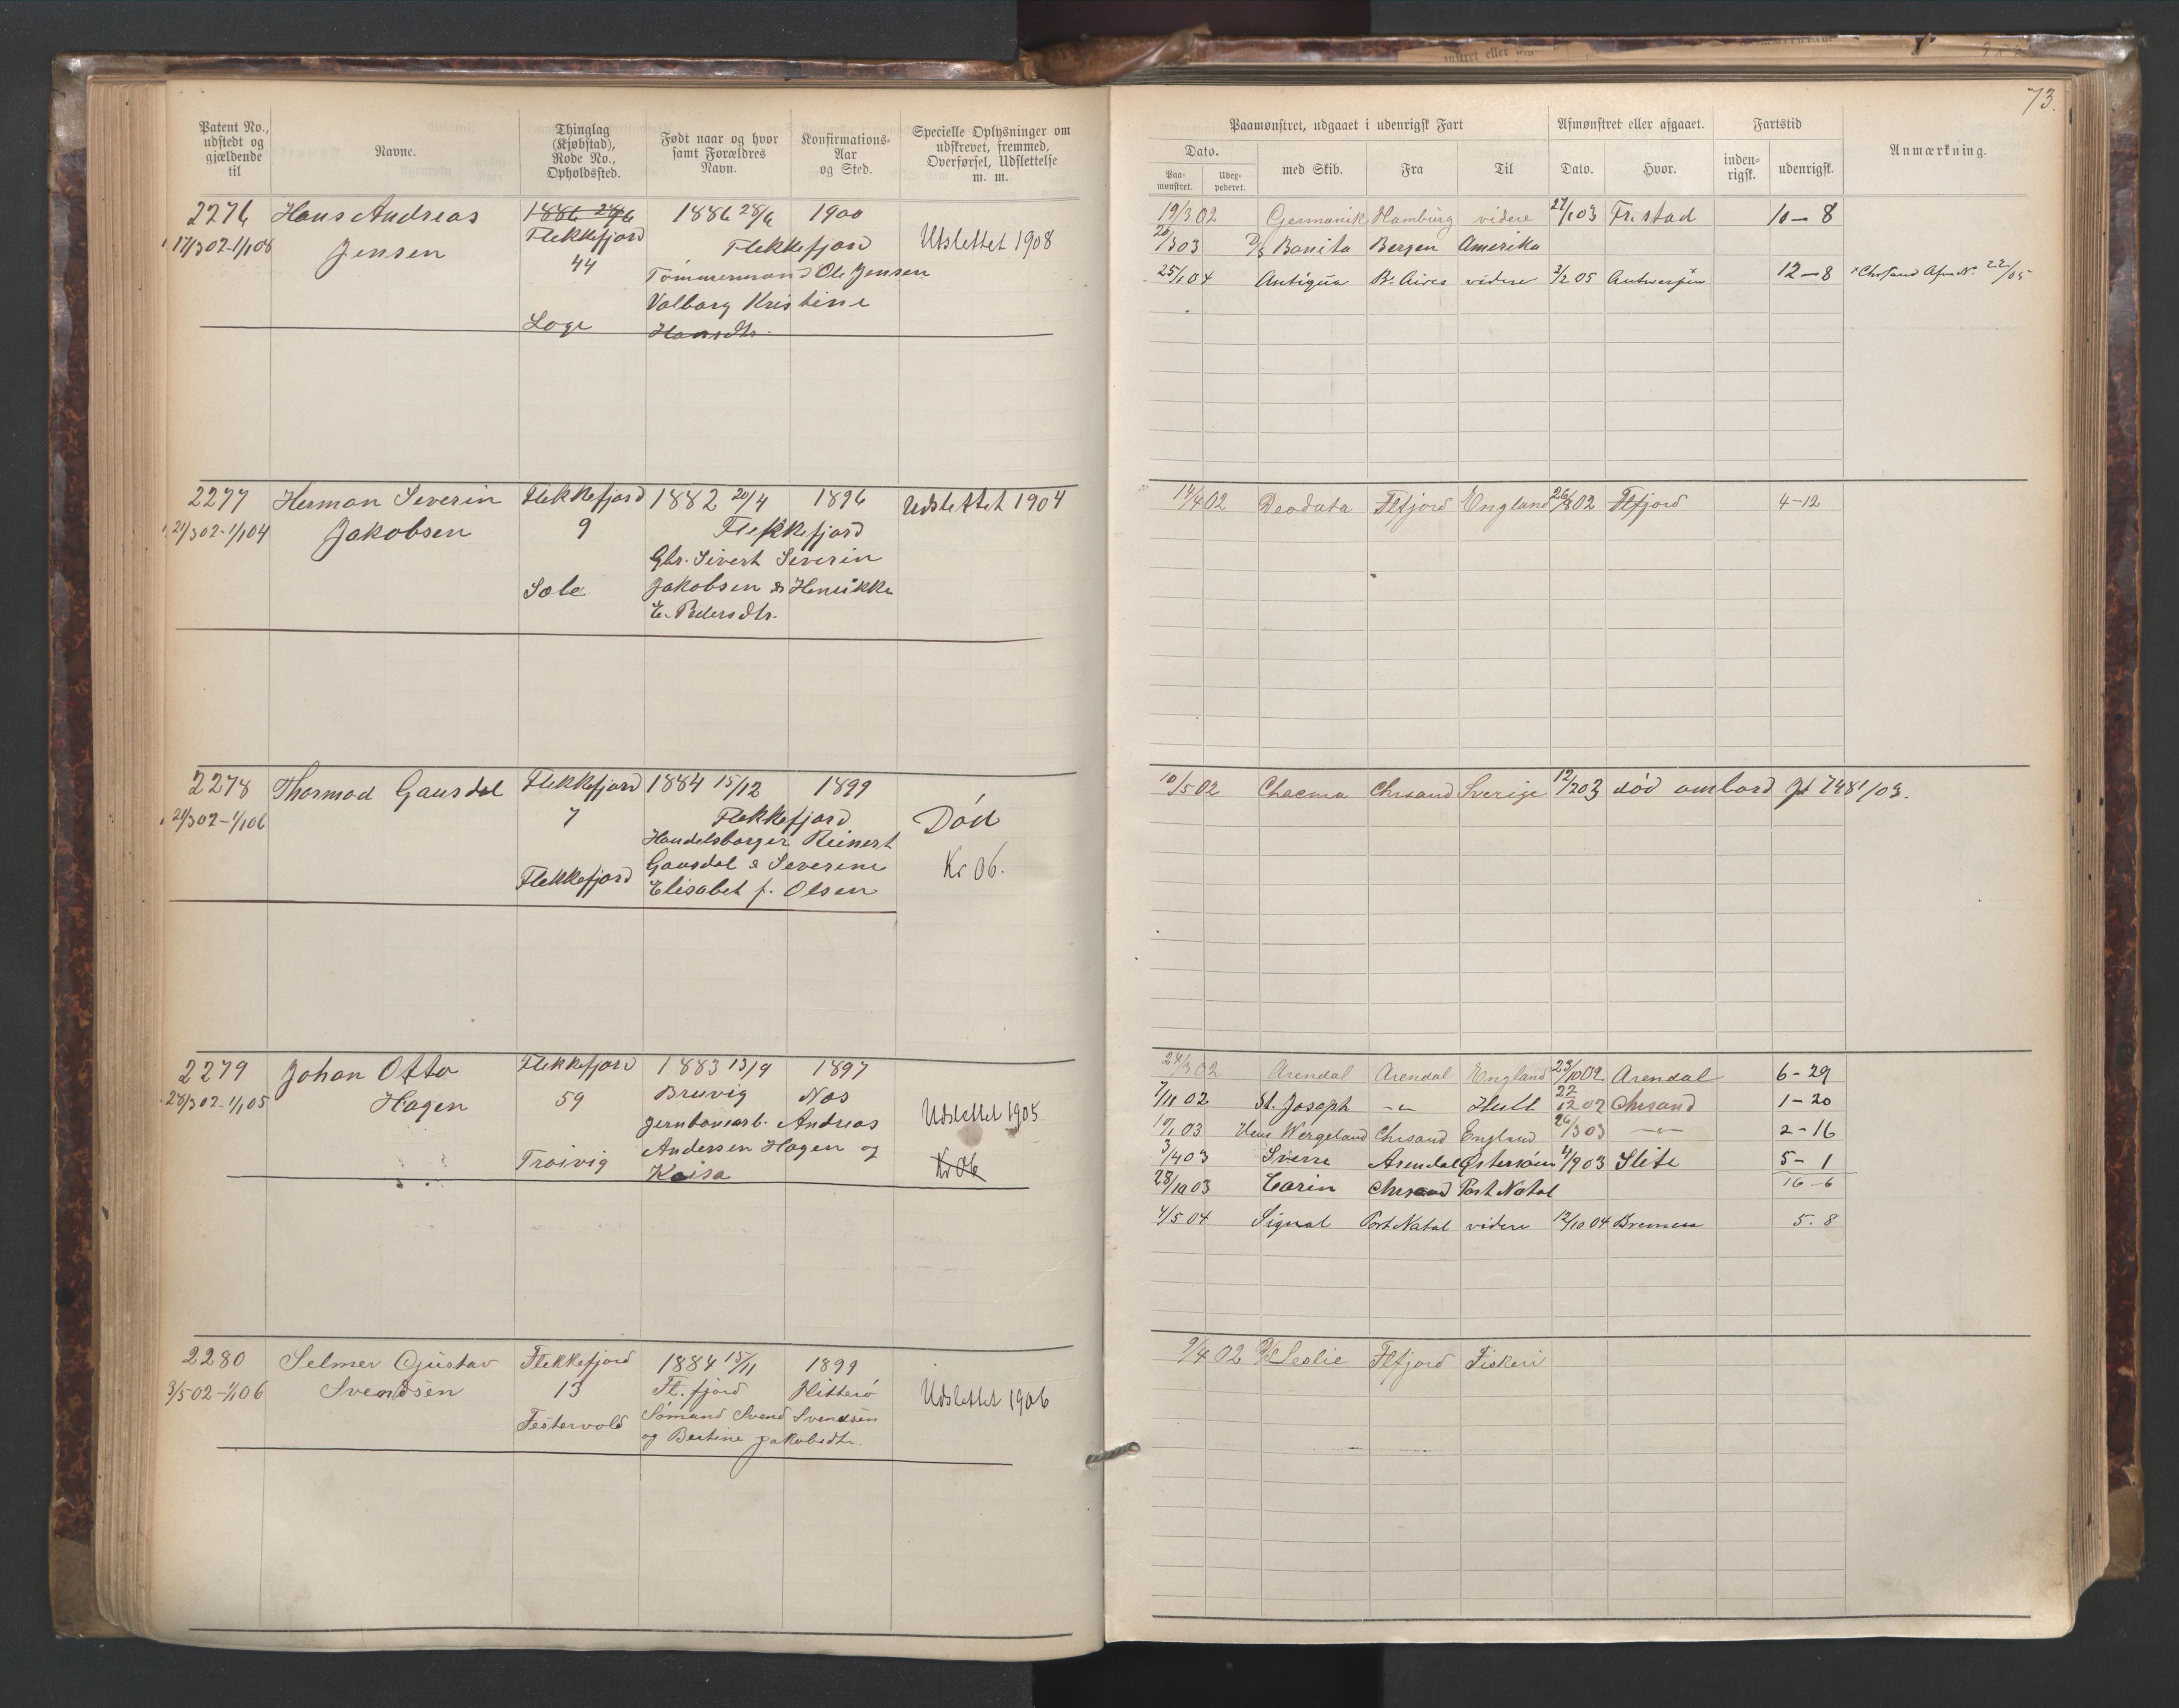 73.
Patent No., udstedt og gjældende til
Navne.
Thinglag (Kjøbstad), Rode No., Opholdssted.
Født naar og hvor samt Forældres Navn.
Konfirmations-Aar og Sted.
Specielle Oplysninger om udskrevet, fremmed, Overførsel, Udslettelse m. m.
Paamønstret, udgaaet i udenrigsk Fart
Afmønstret eller afgaaet.
Fartstid
Anmærkning.
Dato.
Paa-mønstret.
med Skib.
Fra
Til
Dato.
Hvor.
inden-rigsk.
udenrigsk.
2276 Hans Andreas 1886 28/6 1886 28/6 1900
17/3 02-1/1 08 Jensen Flekkefjord Flekkefjord Utslettet 1908
44 Tømmermand Ole Jensen
Valborg Kristine
Loge Hansdtr.
19/3 02 Germanik Hamburg videre 27/1 03 Fr.stad 10-8
20/3 03 D/S Bonita Bergen Amerika
25/1 04 Antigua B. Aires videre 2/2 05 Antwerpen 12-8 22/05
2277 Herman Severin Flekkefjord 1882 20/4 1896 Udslettet 1904
21/3 02-1/1 04 Jakobsen 9 Flekkefjord
Gbr. Sivert Severin
Sole Jakobsen & Henrikke
E. Pedersdtr.
14/4 02 Deodata Flfjord England 26/8 02 Flfjord 4-12
2278 Thormod Gausdal Flekkefjord 1884 15/12 1899
21/3 02-1/1 06 7 Flekkefjord Død
Handelsborger Reinert
Gausdal & Severine Kr 06.
Flekkefjord Elisabet f. Olsen
10/5 02 Chacma Chrsand Sverige 12/2 03 død ombord Jf 748/03.
2279 Johan Otto Flekkefjord 1883 13/9 1897
28/3 02-1/1 05 Hagen 59 Bruvig Nos
Jernbanearb. Andreas Udslettet 1905
Andersen Hagen og
Troivig Kaisa Kr 06
24/3 02 Arendal Arendal England 23/10 02 Arendal 6-29
7/11 02 St. Joseph -"- Hull 22/12 02 Chrsand 1-20
10/1 03 Henr Wergeland Chrsand England 26/3 03 -"- 2-16
3/4 03 Sverre Arendal Østersøen 4/9 03 Slite 5-1
28/10 03 Carin Chrsand Port Natal 16-6
4/5 04 Signal Port Natal videre 12/10 04 Bremen 5.8
2280 Selmer Gustav Flekkefjord 1884 15/11 1899
3/5 02-1/1 06 Svendsen 13 Fl.fjord Hitterø Udslettet 1906
Festervold Sømand Svend Svendsen
og Bertine Jakobsdtr.
9/4 02 D/S Leslie Flfjord Fiskeri